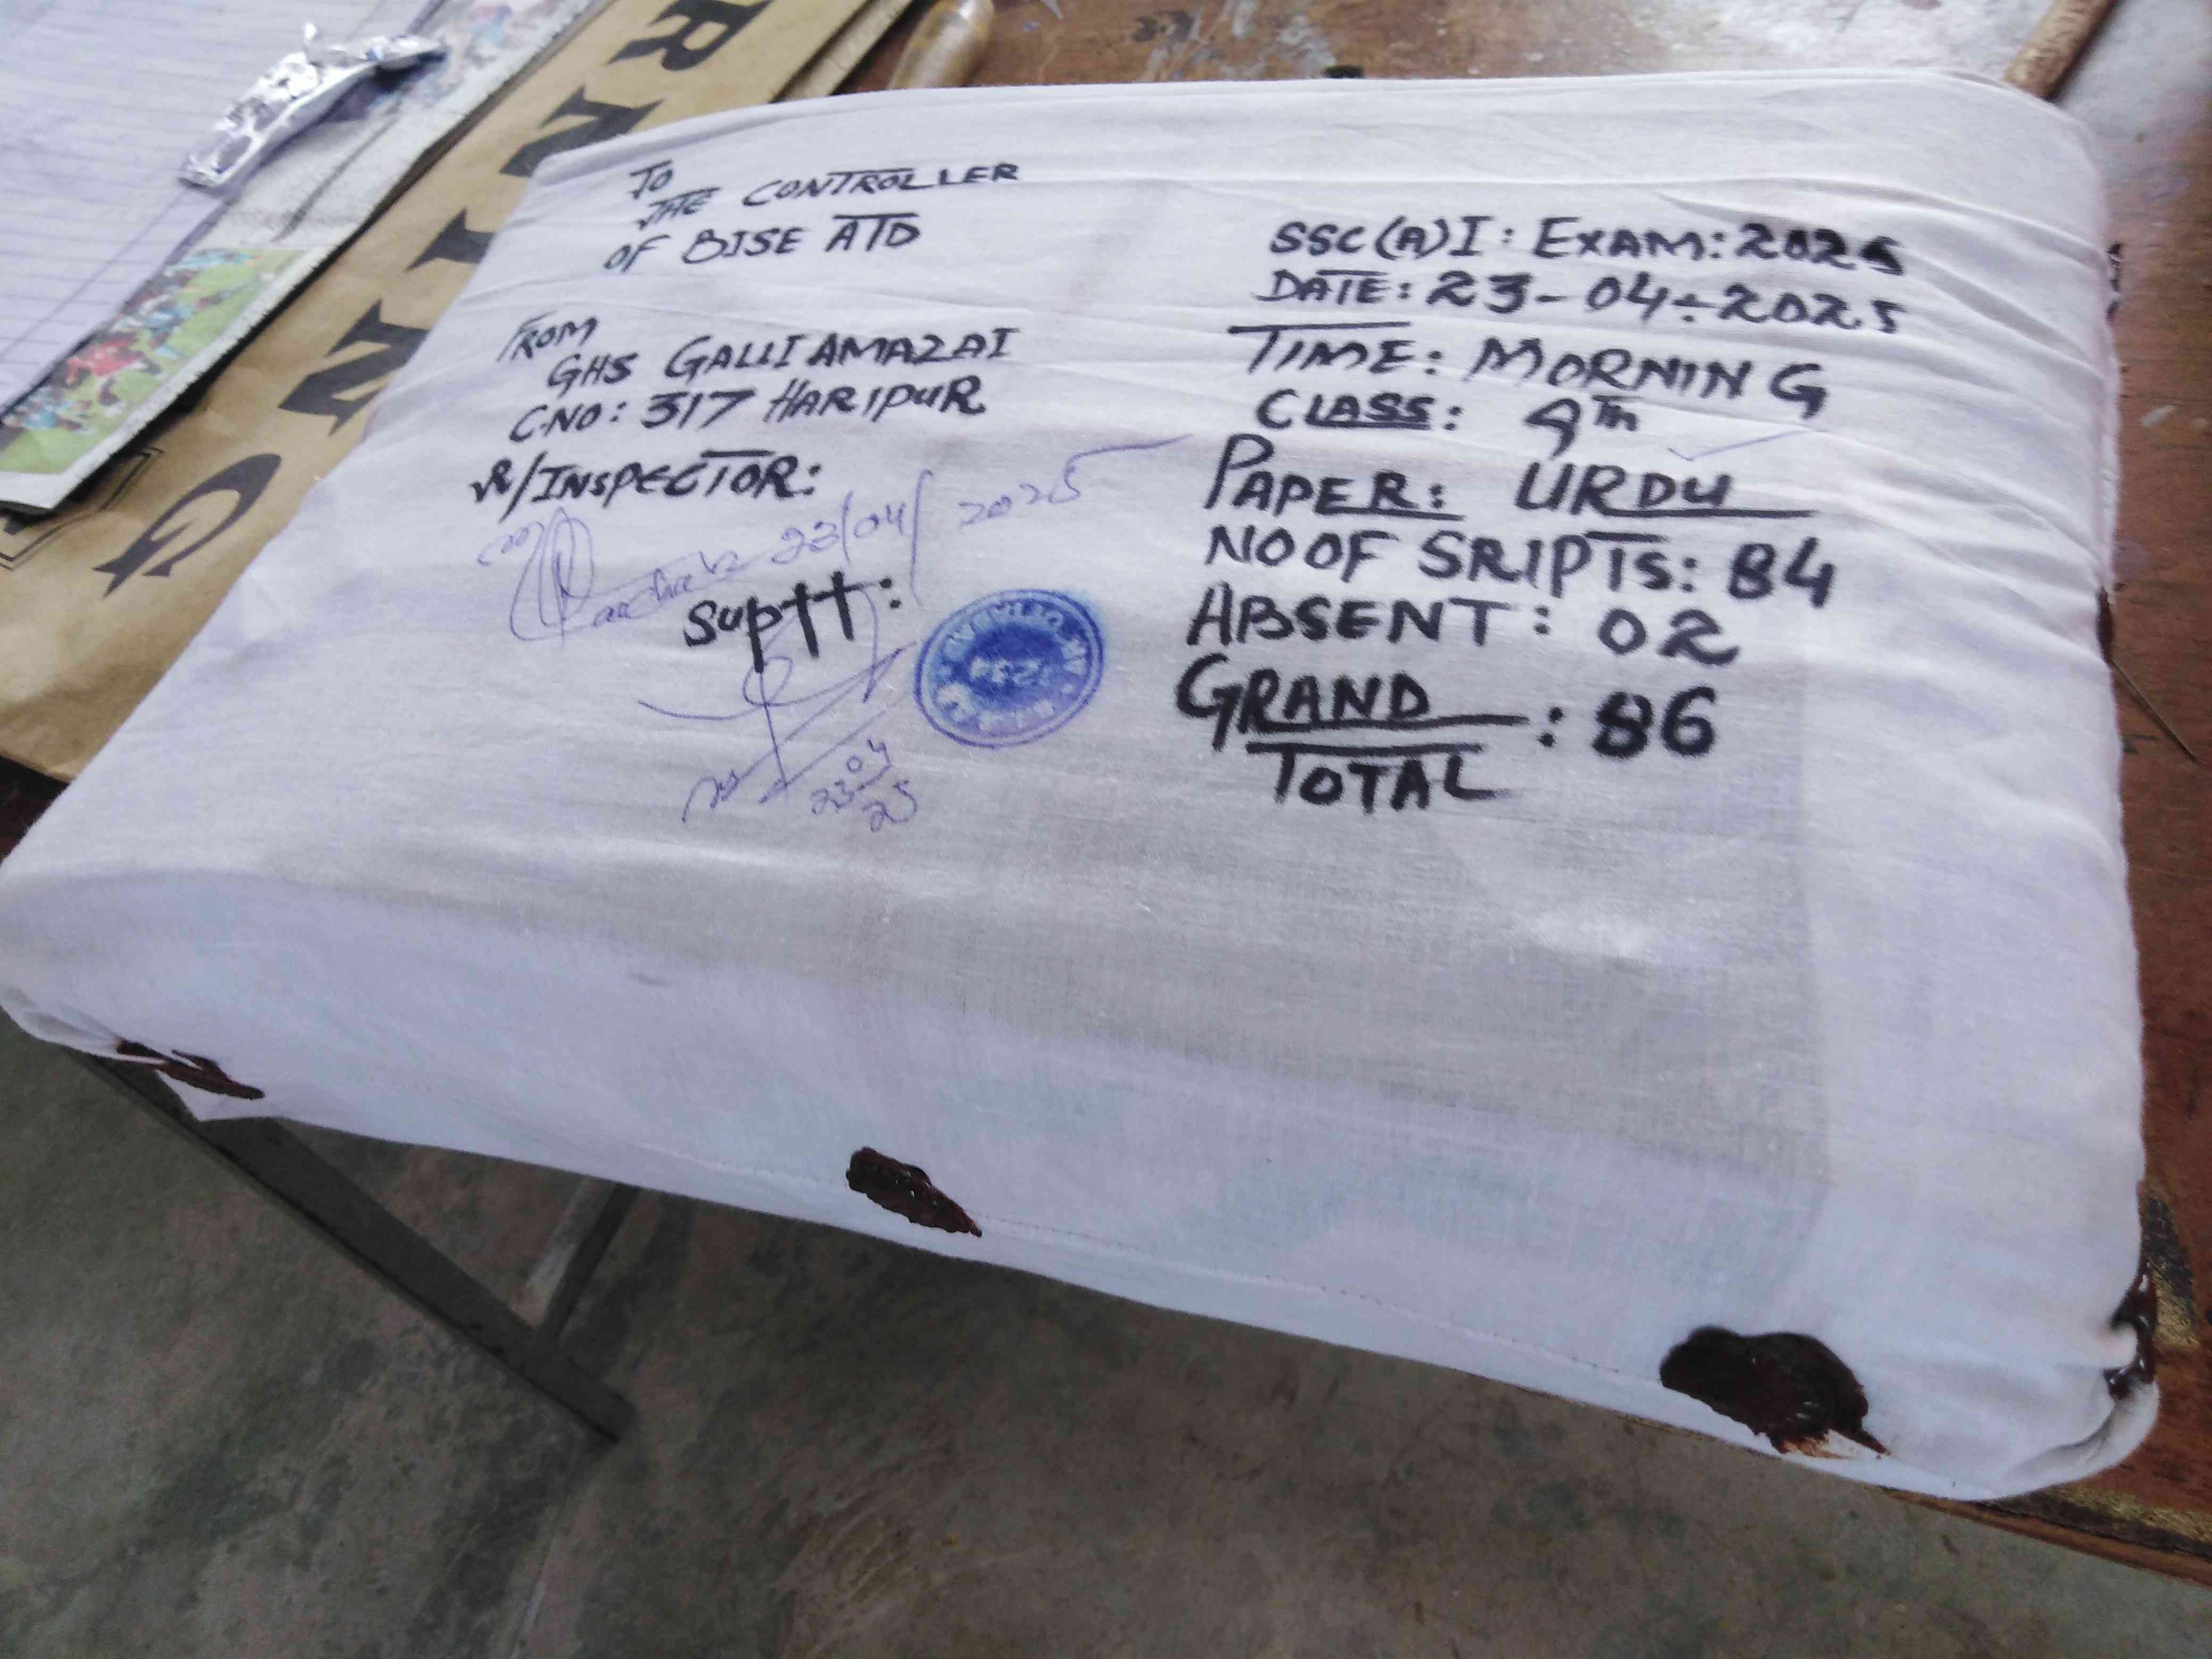 TO
THE CONTROLLER
OF BISE ATD
FROM
GHS GALLI AMAZAI
C.NO: 317 HARIPUR
R/INSPECTOR:
23/04/2025
Suptt:
23 04
25
SSC(A)I: EXAM: 2025
DATE: 23-04-2025
TIME: MORNING
CLASS: 9TH
PAPER: URDU
NO OF SRIPTS: 84
ABSENT: 02
GRAND : 86
TOTAL
RNING